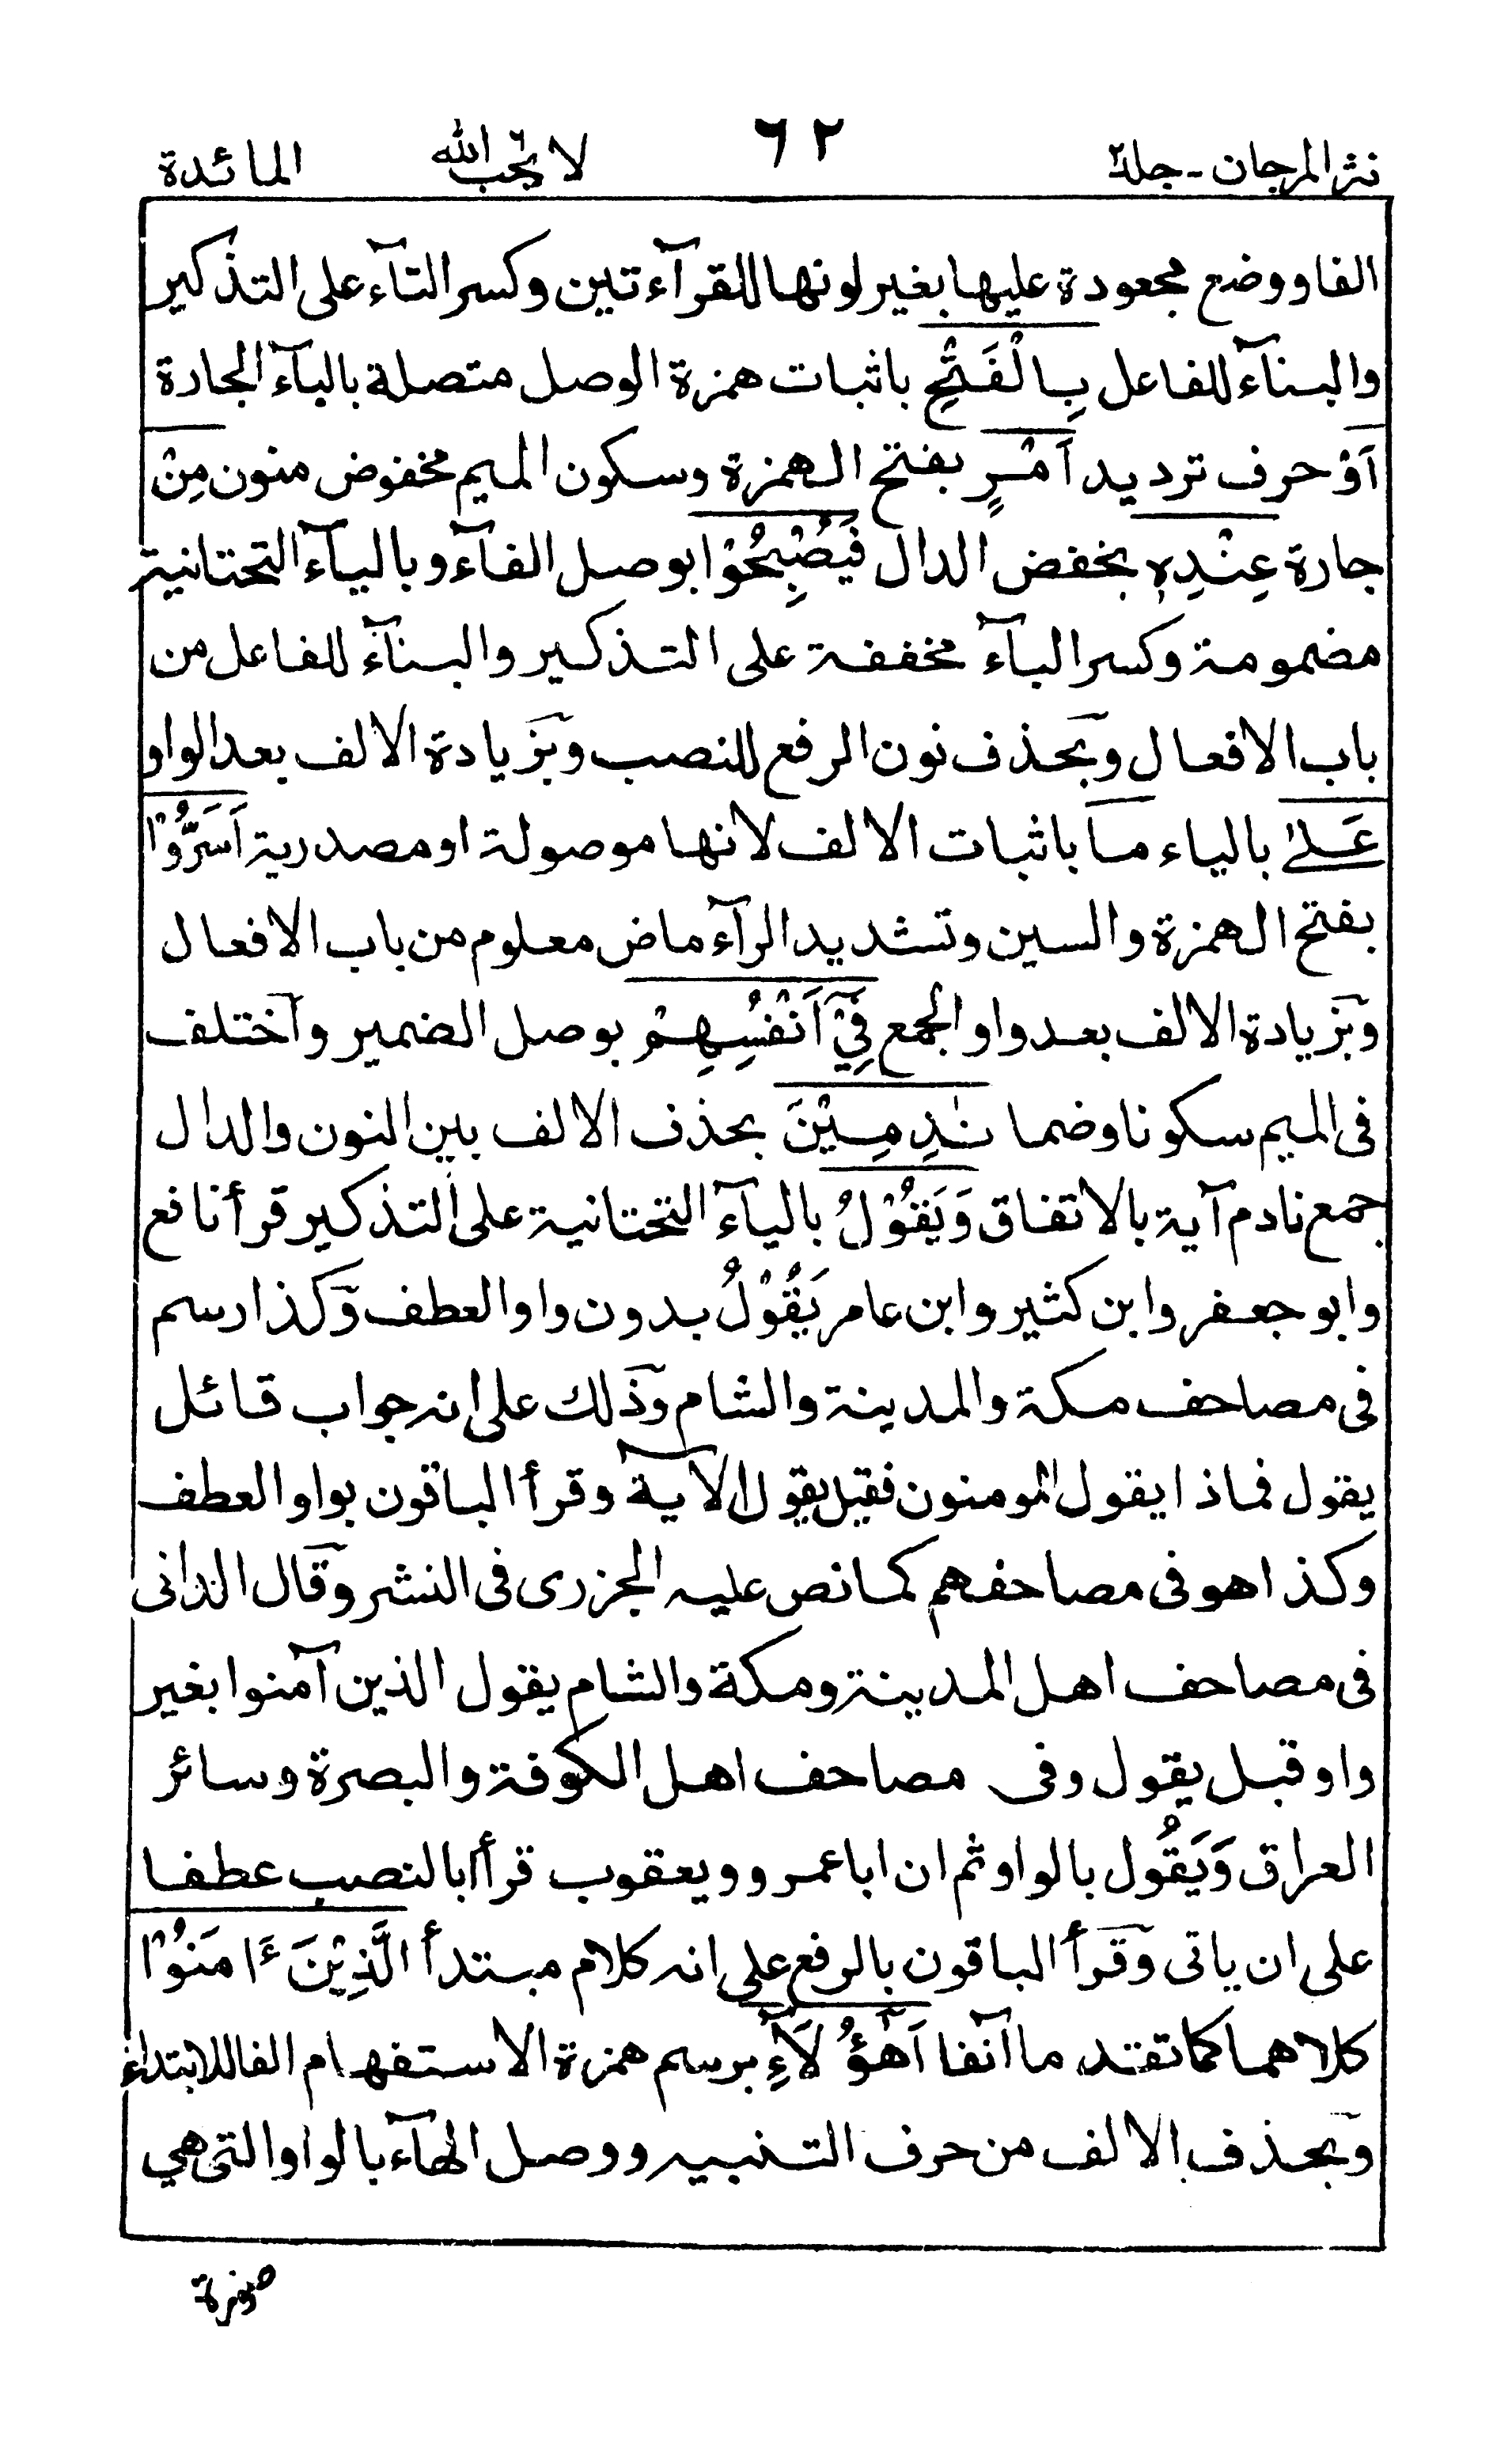 نثر المرجان - جلد٢ ٦٢ لا يحب الله المائدة
الفا ووضع مجعودة عليها بغير لونها للقرآءتين وكسر التآء على التذكير
والبنآء للفاعل بِالْفَتْحِ باثبات همزة الوصل متصلة بالبآء الجارة
اَوْ حرف ترديد اَمْرٍ بفتح الهمزة وسكون الميم مخفوض منون مِنْ
جارة عِنْدِهٖ بخفض الدال فَيُصْبِحُوْا بوصل الفآء وبالياۤء التحتانية
مضمومة وكسر البآء مخففة على التذكير والبنآء للفاعل من
باب الافعال وبحذف نون الرفع للنصب وبزيادة الالف بعد الواو
عَلٰى بالياء مآ باثبات الالف لانها موصولة او مصدرية اَسَرُّوْا
بفتح الهمزة والسين وتشديد الرآء ماض معلوم من باب الافعال
وبزيادة الالف بعد واو الجمع فِيْٓ اَنْفُسِهِمْ بوصل الضمير واختلف
فى الميم سكونا وضما نٰدِمِيْنَ بحذف الالف بين النون والدال
جمع نادم آية بالاتفاق وَيَقُوْلُ بالياۤء التحتانية على التذكير قرأ نافع
وابو جعفر وابن كثير وابن عامر يَقُوْلُ بدون واو العطف وكذا رسم
فى مصاحف مكة والمدينة والشام وذلك على انه جواب قائل
يقول فماذا يقول المومنون فقيل يقول الآية وقرأ الباقون بواو العطف
وكذا هو فى مصاحفهم كما نص عليه الجزرى فى النشر وقال الدانى
فى مصاحف اهل المدينة ومكة والشام يقول الذين آمنوا بغير
واو قبل يقول وفى مصاحف اهل الكوفة والبصرة وسائر
العراق وَيَقُول بالواو ثم ان ابا عمرو ويعقوب قرأا بالنصب عطفا
على ان ياتى وقرأ الباقون بالرفع على انه كلام مبتدأ الَّذِيْنَ ءَامَنُوْا
كلاهما كما تقدما آنفا اَهٰٓؤُلَآءِ برسم همزة الاستفهام الفا للابتداء
وبحذف الالف من حرف التنبيه ووصل الهآء بالواو التى هي